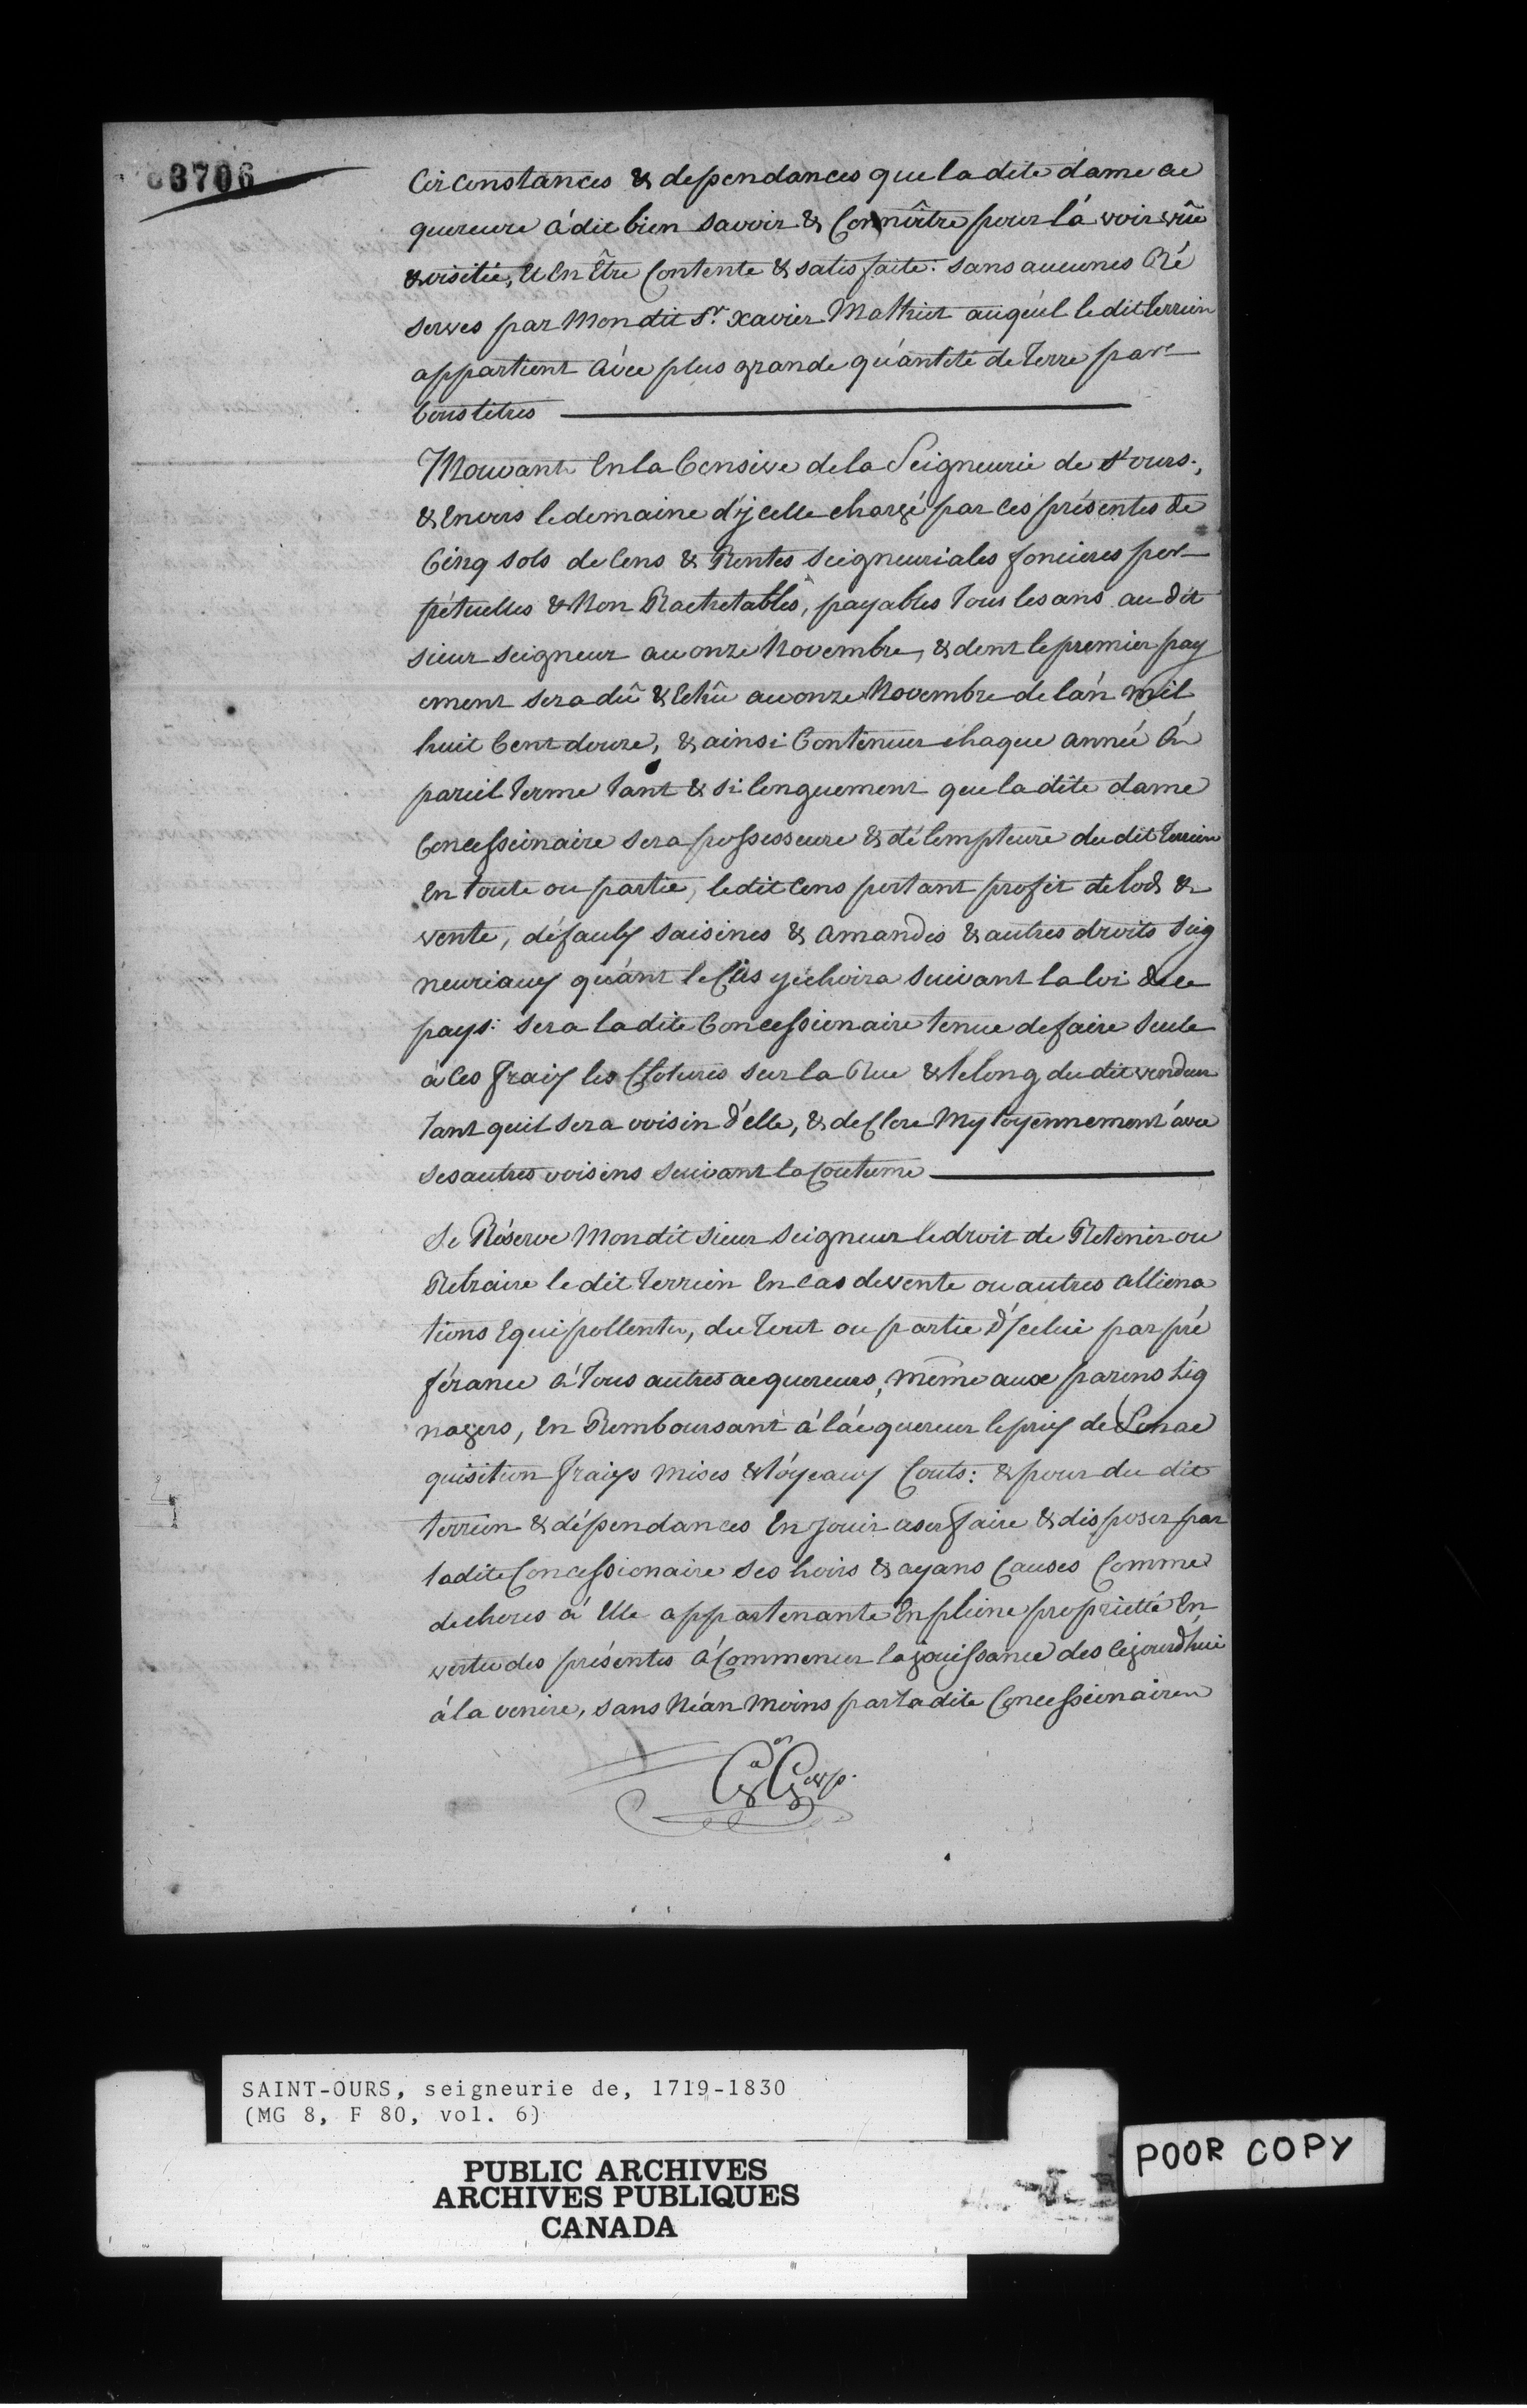 3706
Circonstances & dependances que la dite dame ac
quereure à dit bien savoir & Connoître pour l'á voir vûe
& visitée, & En Être Contente & satisfaite: sans aucunes Ré
serves par Mondit Sr. Xavier Mathieu auquel le dit terrein
appartient avec plus grande quántité de Terre par
bons titres
Mouvant En la Censive de la Seigneurie de St ours.,
& Envers le domaine d'ycelle chargé par ces présentes de
Cinq sols de Cens & Rentes seigneuriales foncieres per
pétuelles & Non Rachetables, payables Tous les ans au dit
sieur seigneur au onze Novembre, & dont le premier pay
ement sera dû & Echû au onze Novembre de l'án mil
huit Cent douze, & ainsi Continuer chaque année á
pareil Terme tant & si longuement que la dite dame
Concessionaire sera possesseure & détempteure du dit Terrein
En toute ou partie, le dit Cens portant profit de lods &
vente, défauts saisines & amandes & autres droits Seig
neuriaux quánt le Cas y échoira suivant la loi de ce
pays: sera la dite Concessionaire tenue de faire seule
à ces fraix les Clotures sur la Rue & le long du dit vendeur
tant quil sera voisin d'elle, & de Clore Mytoyennement avec
ses autres voisins suivant la Coutume
Se Réserve Mondit sieur seigneur le droit de Retenir ou
Retraire le dit Terrein En cas de vente ou autres alliena
tions Equipollentes, du Tout ou partie d'Icelui par pré
férance à Tous autres acquereurs, même aux parens Lig
nagers, En Remboursant à l'ácquereur le prix de Sonac
quisition fraix mises & lóyeaux Couts: & pour du dit
terrein & dépendances En Jouir user faire & disposer par
ladite Concessionaire ses hoirs & ayans Causes Comme
de choses à Elle appartenante En pleine propriétté En
vertu des présentes à Commencer la jouissance des cejourd'hui
à la venire, sans Néan Moins par La dite Concessionaire
SAINT-OURS, seigneurie de, 1719-1830
(MG 8, F 80, vol. 6)
PUBLIC ARCHIVES
ARCHIVES PUBLIQUES
CANADA
POOR COPY